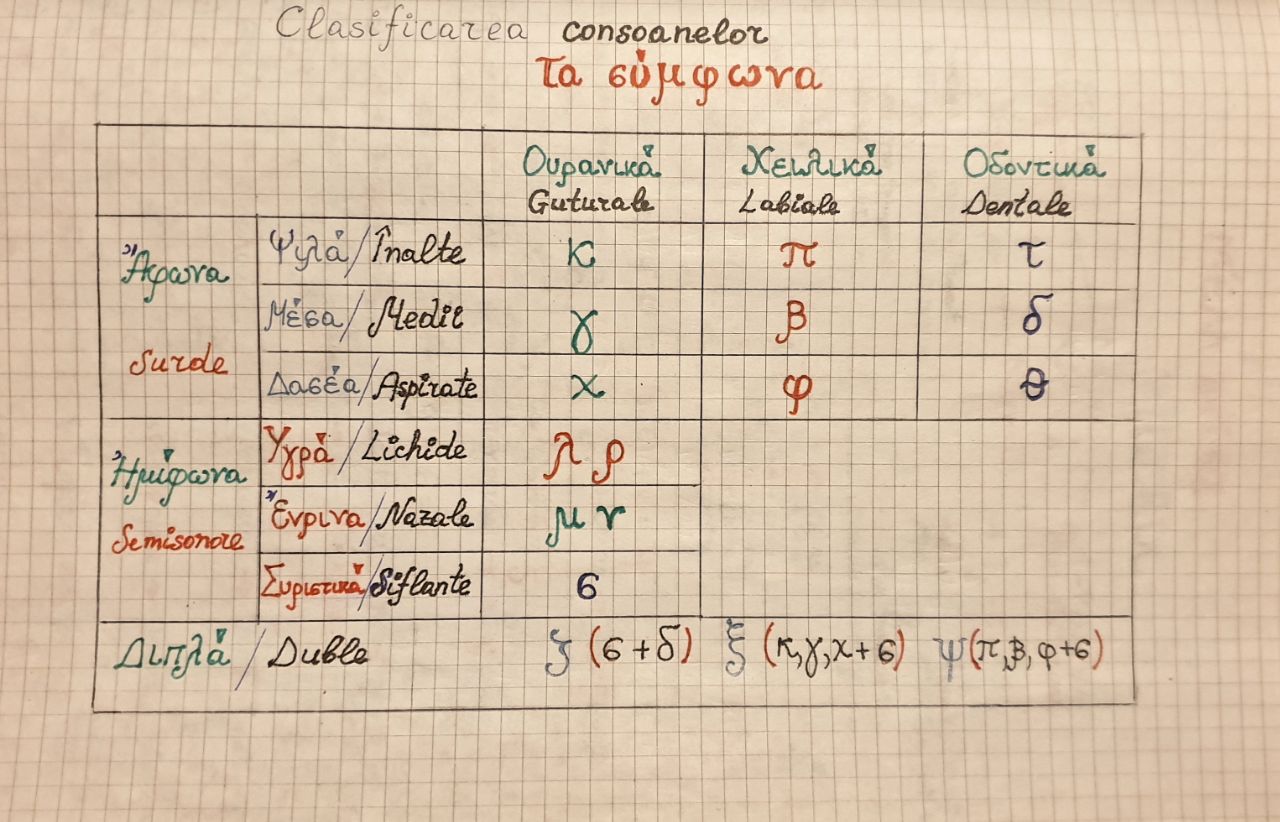 Clasificarea consoanelor
Τα σύμφωνα
Ουρανικά Χειλικά Οδοντικά
Guturale Labiale Dentale
Ἄφωνα Ψιλά/Înalte κ π τ
Μέσα/Medii γ β δ
Surde Δασέα/Aspirate χ φ θ
Ἡμίφωνα Υγρά/Lichide λ ρ
Semisonore Ἔνρινα/Nazale μ ν
Συριστικά/Siflante σ
Διπλά/Duble ζ (σ+δ) ξ (κ,γ,χ+σ) ψ(π,β,φ+σ)